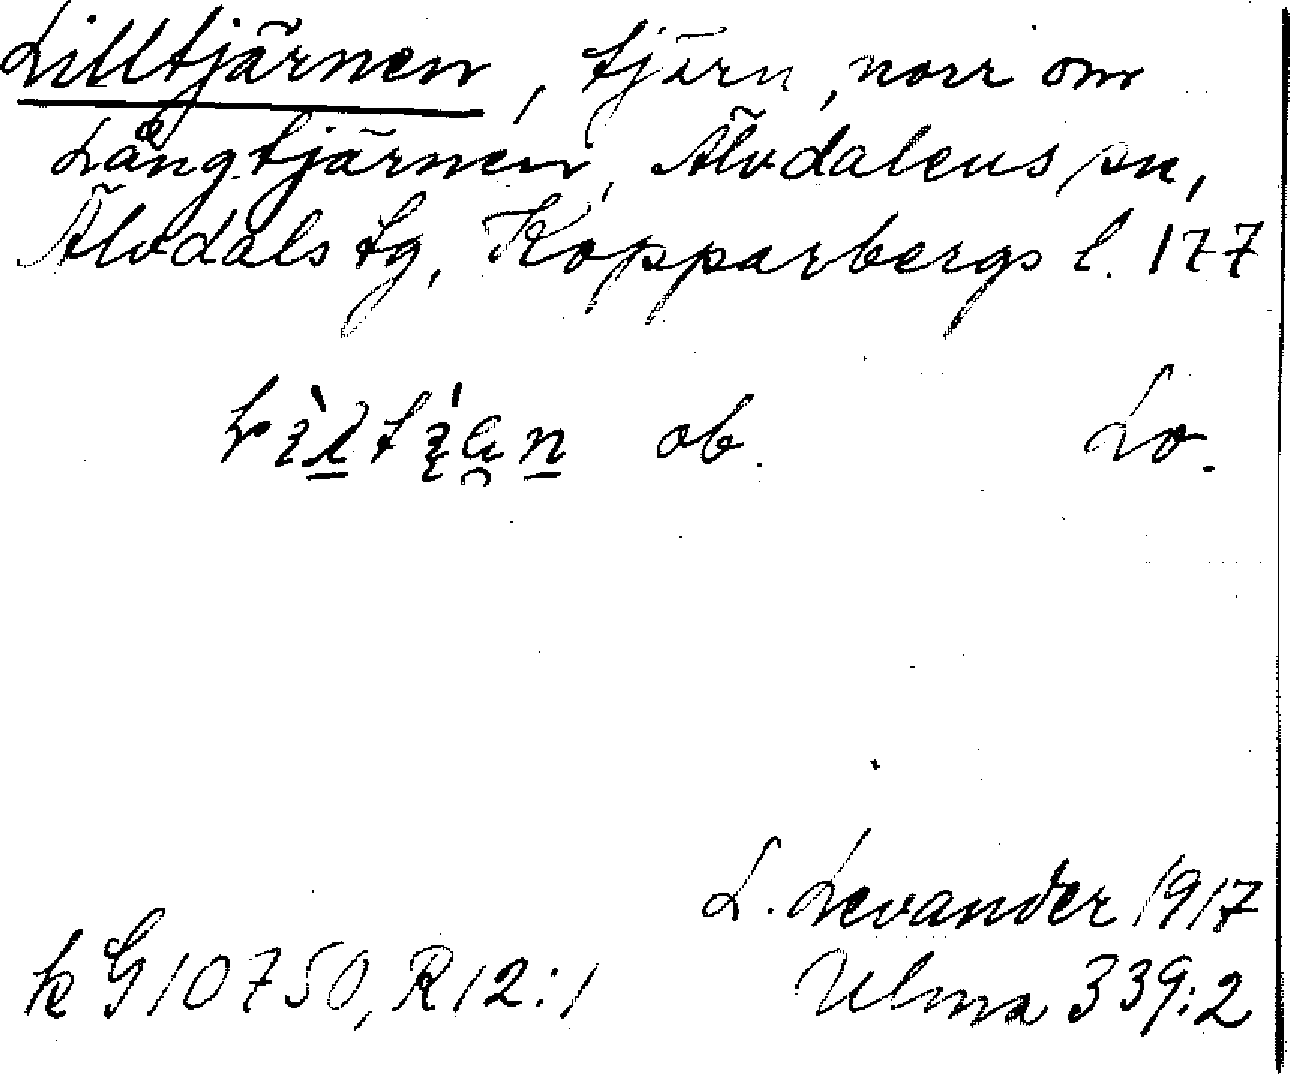 Lilltjärnen, tjärn, norr om
Långtjärnen, Älvdalens sn,
Älvdals tg, Kopparbergs l. 177
ob. Lo.
L. Levander 1917
k G 10750, R 12:1 Ulma 339:2